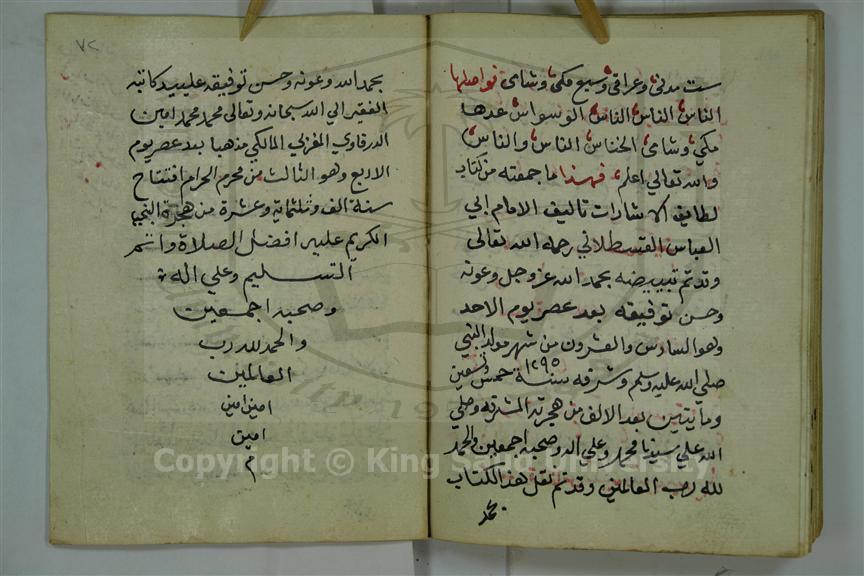 ست مدني وعراقي وسبع مكي وشامي فواصلها
الناس الناس الناس الوسواس عدها
مكي وشامي الخناس الناس والناس
والله تعالى اعلم فهذا ما جمعته من كتاب
لطايف الاشارات تاليف الامام ابي
العباس القسطلاني رحمه الله تعالى
وقد تم تبييضه بحمد الله عز وجل وعونه
وحسن توفيقه بعد عصر يوم الاحد
وهو السادس والعشرون من شهر مولد النبي
صلي الله عليه وسلم وشرفه سنة ١٢٩٥ خمس وتسعين
ومايتين بعد الالف من هجرته المشرفه وصلي
الله علي سيدنا محمد وعلي اله وصحبه اجمعين والحمد
لله رب العالمين وقد تم نقل هذا الكتاب
بحمد
٧٢
بحمد الله وعونه وحسن توفيقه علي يد كاتبه
الفقير الي الله سبحانه وتعالى محمد محمد امين
الدرقاوي المغربي المالكي مذهبا بعد عصر يوم
الاربع وهو الثالث من محرم الحرام افتتاح
سنة الف وثلثماية وعشرة من هجرة النبي
الكريم عليه افضل الصلاة واتم
التسليم وعلي اله
وصحبه اجمعين
والحمد لله رب
العالمين
امين امين
امين
م
Copyright © King Saud University